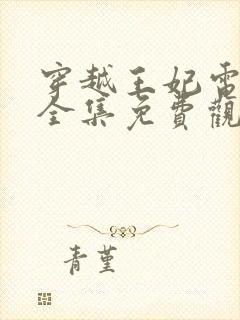 穿越王妃電
全集免費觀
青堇